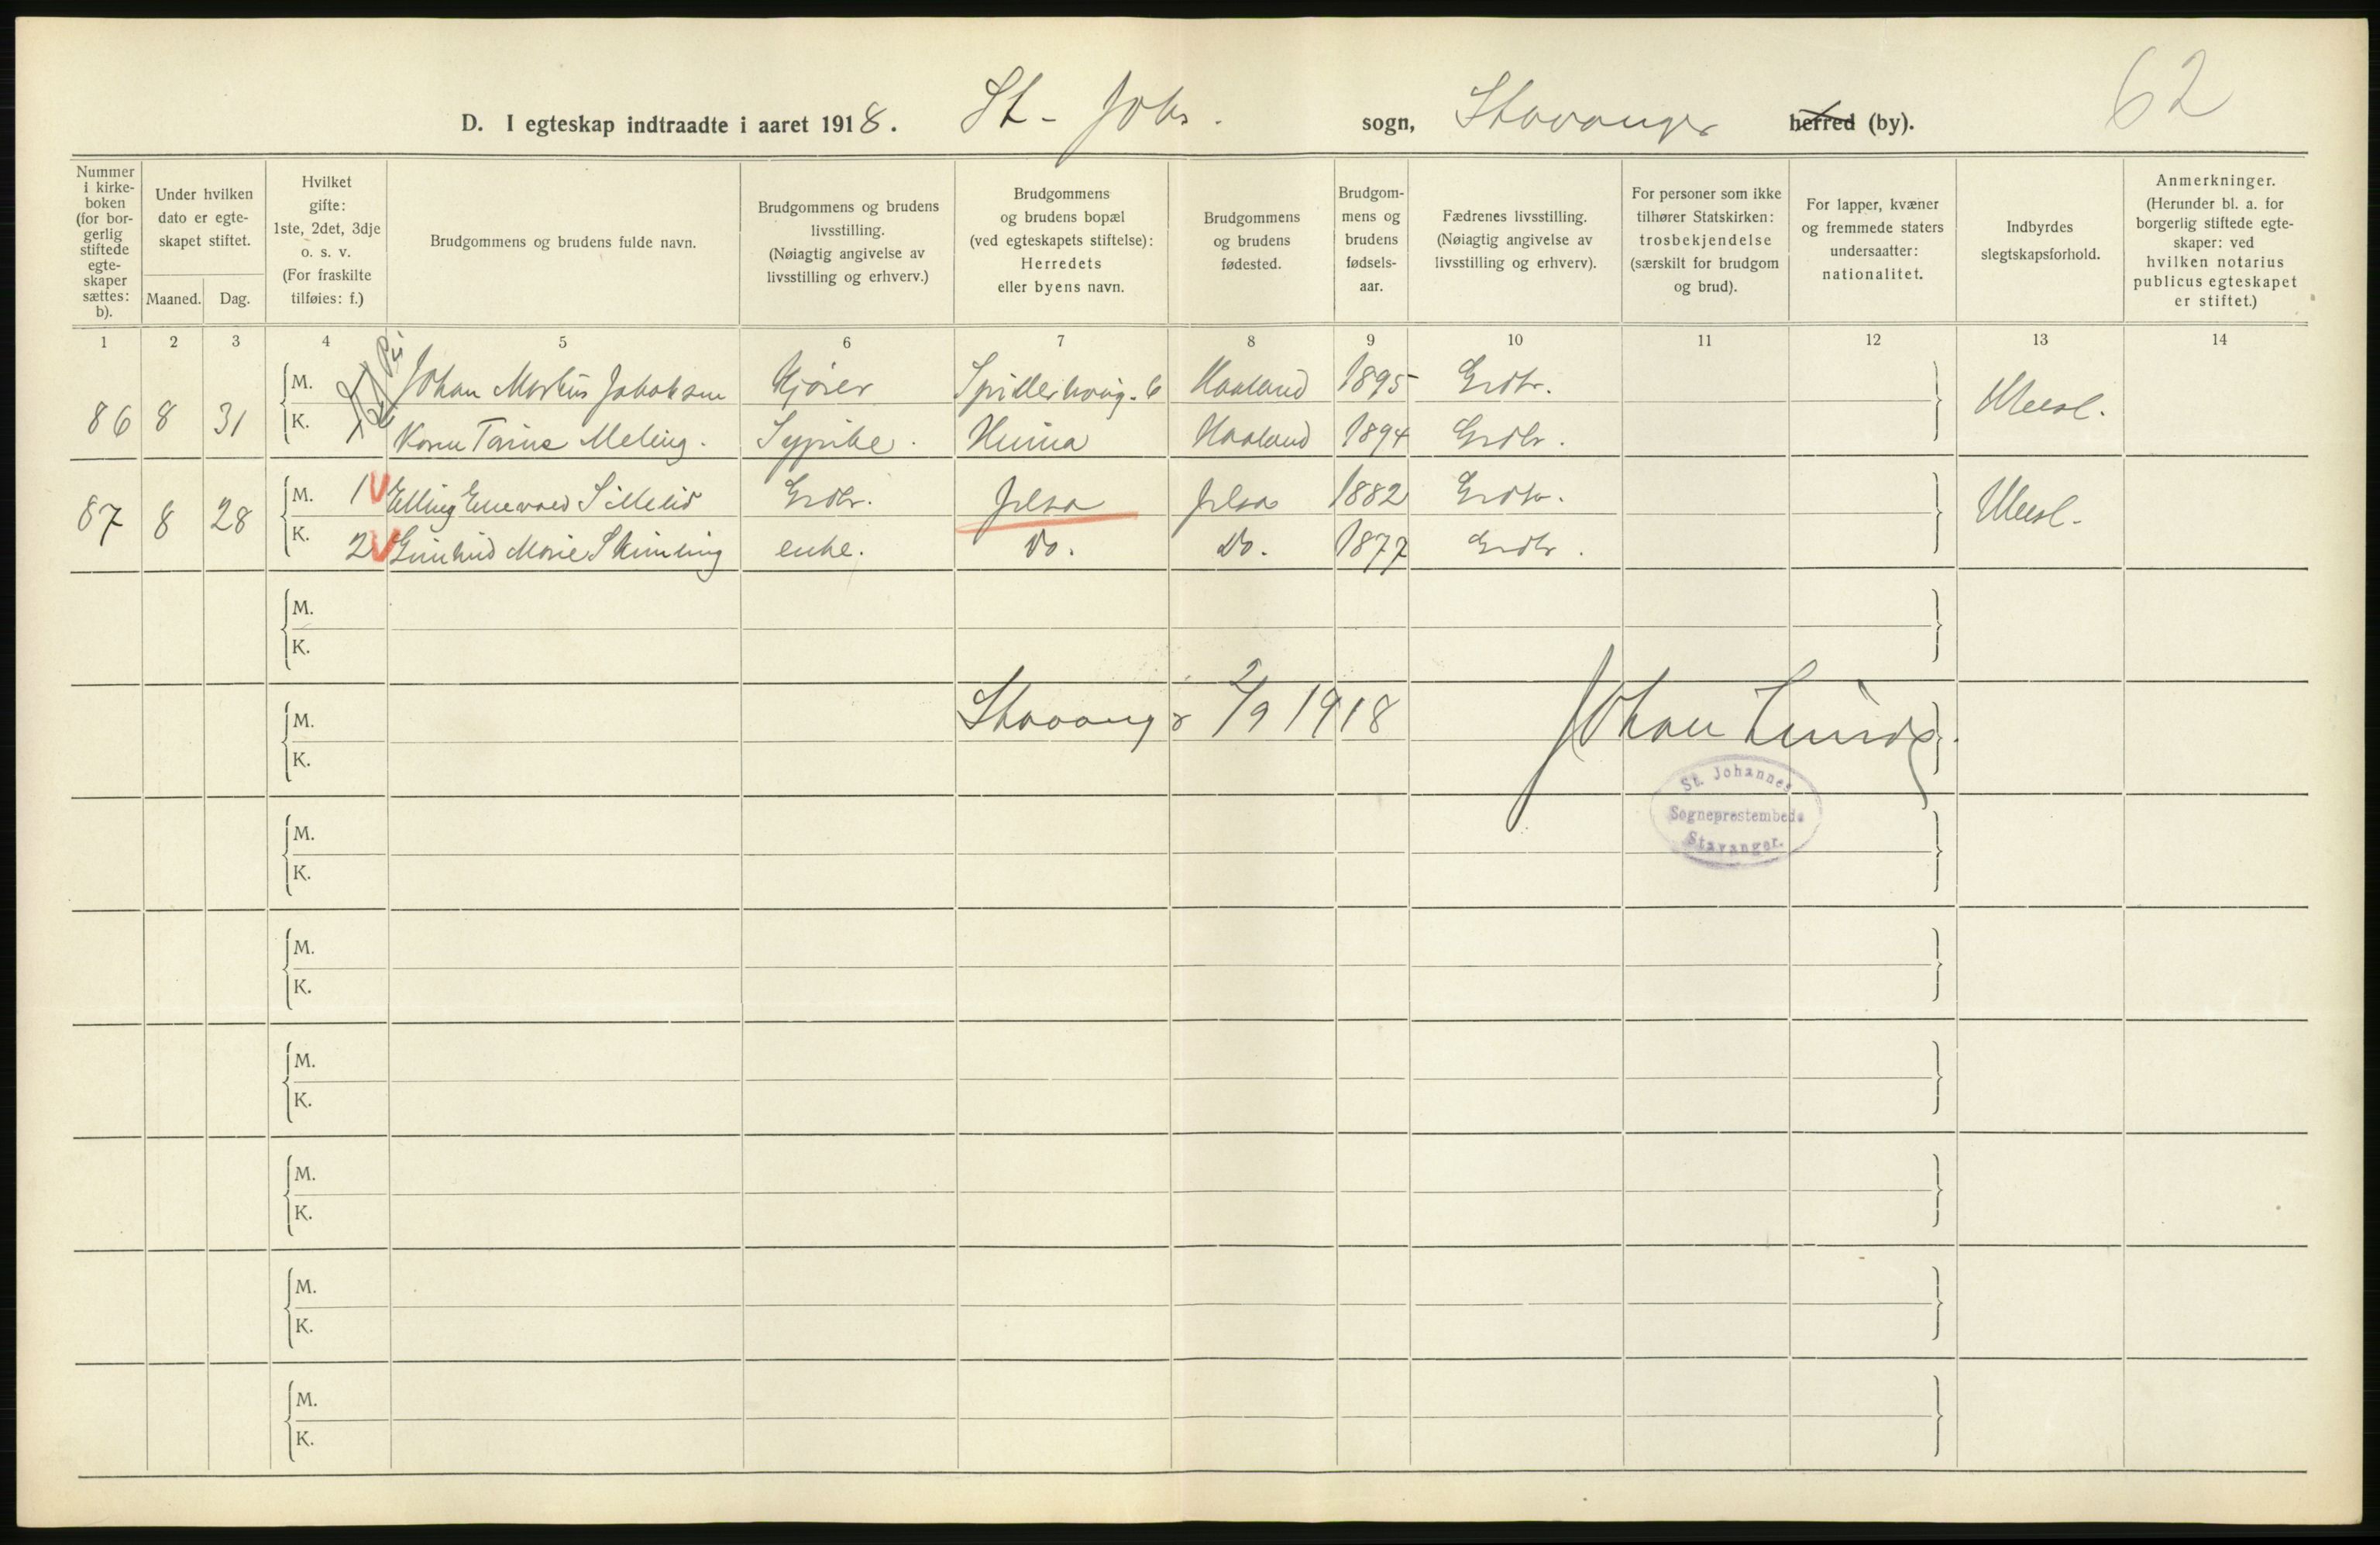 62
D. I egteskap indtraadte i aaret 1918. St. Johs. sogn, Stavanger herred (by).
Nummer i kirkeboken (for borgerlig stiftede egteskaper sættes: b).
Under hvilken dato er egteskapet stiftet.
Maaned.
Dag.
Hvilket gifte: 1ste, 2det, 3dje o. s. v. (For fraskilte tilføies: f.)
Brudgommens og brudens fulde navn.
Brudgommens og brudens livsstilling. (Nøiagtig angivelse av livsstilling og erhverv.)
Brudgommens og brudens bopæl (ved egteskapets stiftelse): Herredets eller byens navn.
Brudgommens og brudens fødested.
Brudgommens og brudens fødselsaar.
Fædrenes livsstilling. (Nøiagtig angivelse av livsstilling og erhverv).
For personer som ikke tilhører Statskirken: trosbekjendelse (særskilt for brudgom og brud).
For lapper, kvæner og fremmede staters undersaatter: nationalitet.
Indbyrdes slegtskapsforhold.
Anmerkninger. (Herunder bl. a. for borgerlig stiftede egteskaper: ved hvilken notarius publicus egteskapet er stiftet.)
1 2 3 4 5 6 7 8 9 10 11 12 13 14
86 8 31
M. Johan Jakobsen Kjører 6 Haaland 1895 Grdbr.
K. Karen Meling. Sypike. Haaland 1894 Grdbr.
Ubesl.
87 8 28
M. 1 Elling Grdbr. Jelsa Jelsa 1882 Grdbr.
K. 2 Marie enke. Do. Do. 1877 Grdbr.
Ubesl.
M.
K.
M.
K.
Stavanger 2/9 1918 Johan Lunde.
St. Johannes
Sogneprestembede
Stavanger.
M.
K.
M.
K.
M.
K.
M.
K.
M.
K.
M.
K.